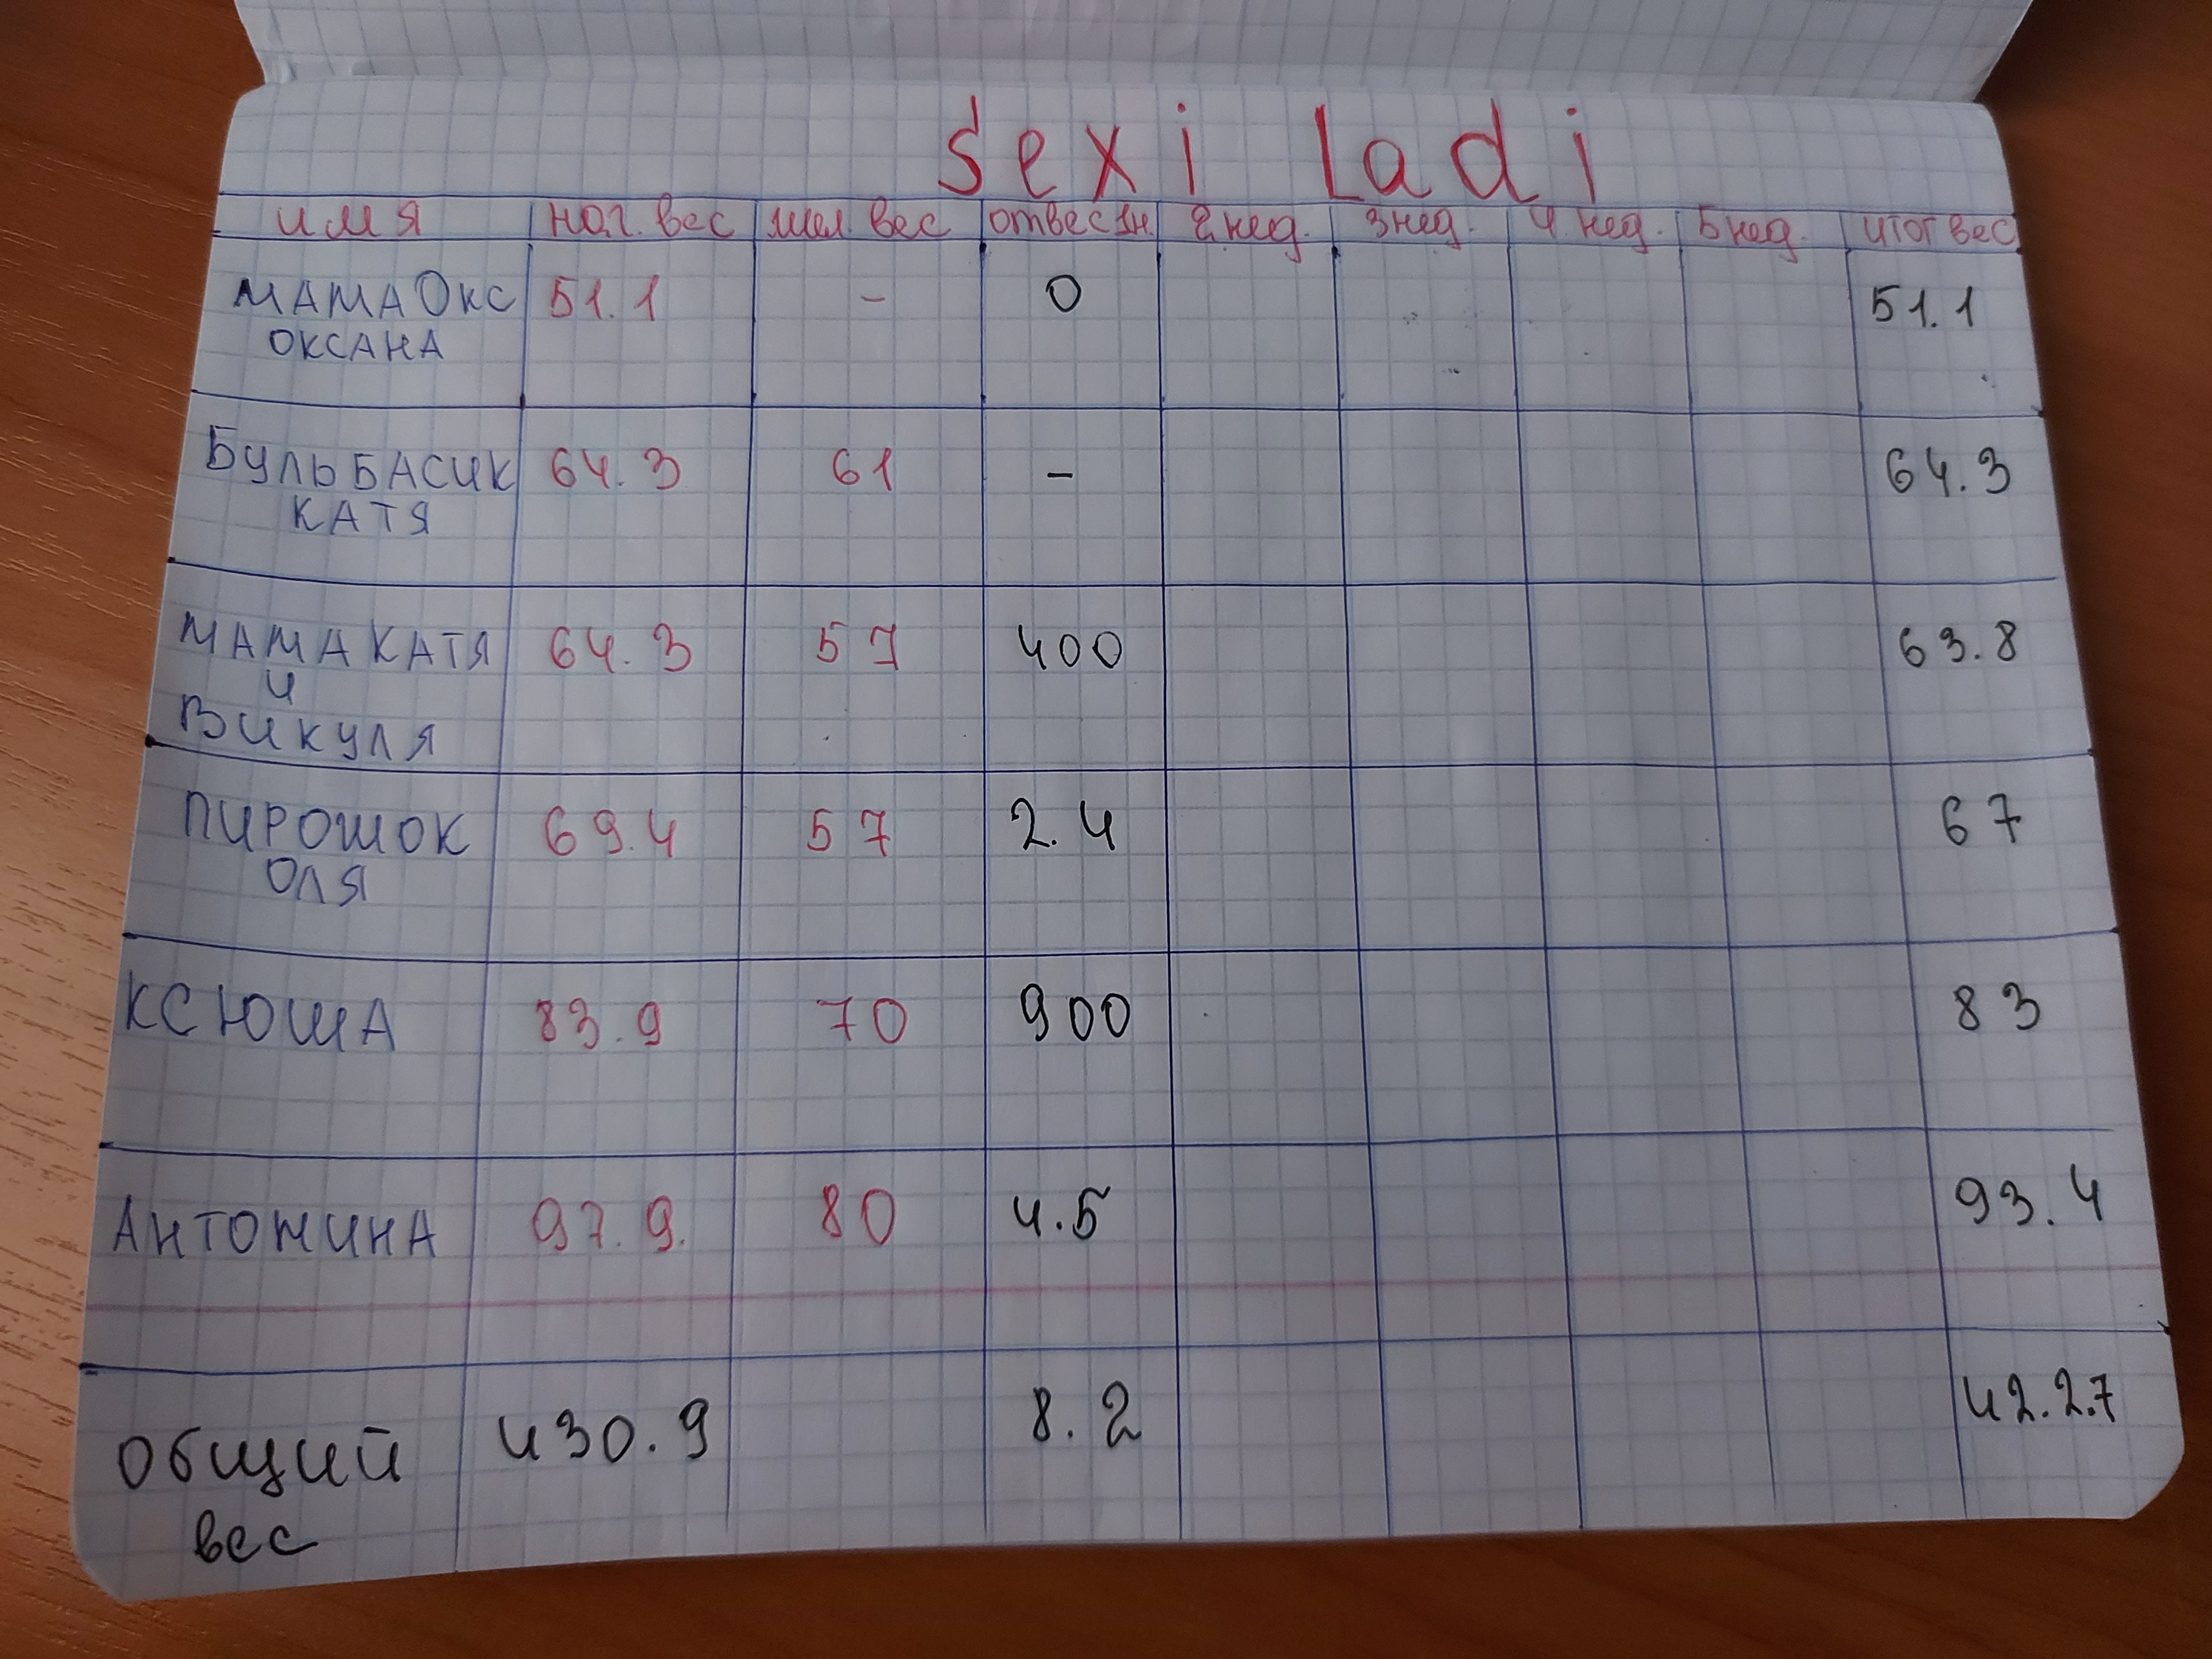 sexi Ladi
имя нач. вес жел. вес отвес 1н. 2 нед. 3 нед. 4 нед. 5 нед. итог вес
МАМА ОКС 51.1 - 0 51.1
ОКСАНА
БУЛЬБАСИК 64.3 61 - 64.3
КАТЯ
МАМА КАТЯ 64.3 57 400 63.8
И
ВИКУЛЯ
ПИРОШОК 69.4 57 2.4 67
ОЛЯ
КСЮША 83.9 70 900 83
АНТОНИНА 97.9. 80 4.5 93.4
Общий 430.9 8.2 42.2.7
вес